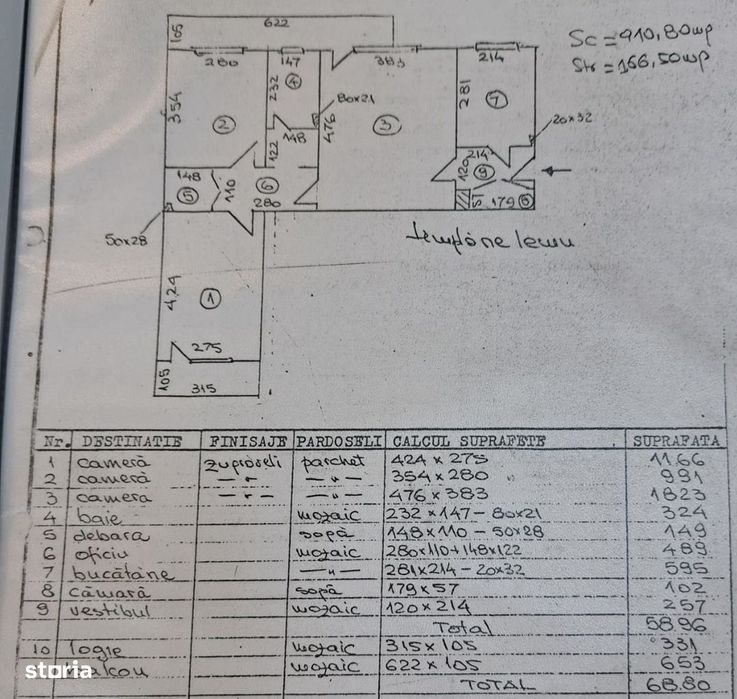 622
Sc = 910,80mp
Str = 166,50mp
105
280
147
383
214
232
4
281
354
80x21
7
2
476
3
20x32
122
148
148
214
120
9
5
110
6
280
57
179
8
50x28
tâmplărie lemn
424
1
275
105
315
Nr. DESTINATIE FINISAJE PARDOSELI CALCUL SUPRAFETE SUPRAFATA
1 cameră zugrăveli parchet 424 x 275 11,66
2 cameră — " — — " — 354 x 280 9,91
3 camera — " — — " — 476 x 383 18,23
4 baie mozaic 232 x 147 - 80x21 3,24
5 debara sapă 148 x 110 - 50x28 1,49
6 oficiu mozaic 280x110 + 148x122 4,89
7 bucătărie — " — 281x214 - 20x32 5,95
8 cămară sapă 179 x 57 1,02
9 vestibul mozaic 120 x 214 2,57
Total 58,96
10 logie mozaic 315 x 105 3,31
storia balcon mozaic 622 x 105 6,53
TOTAL 68,80